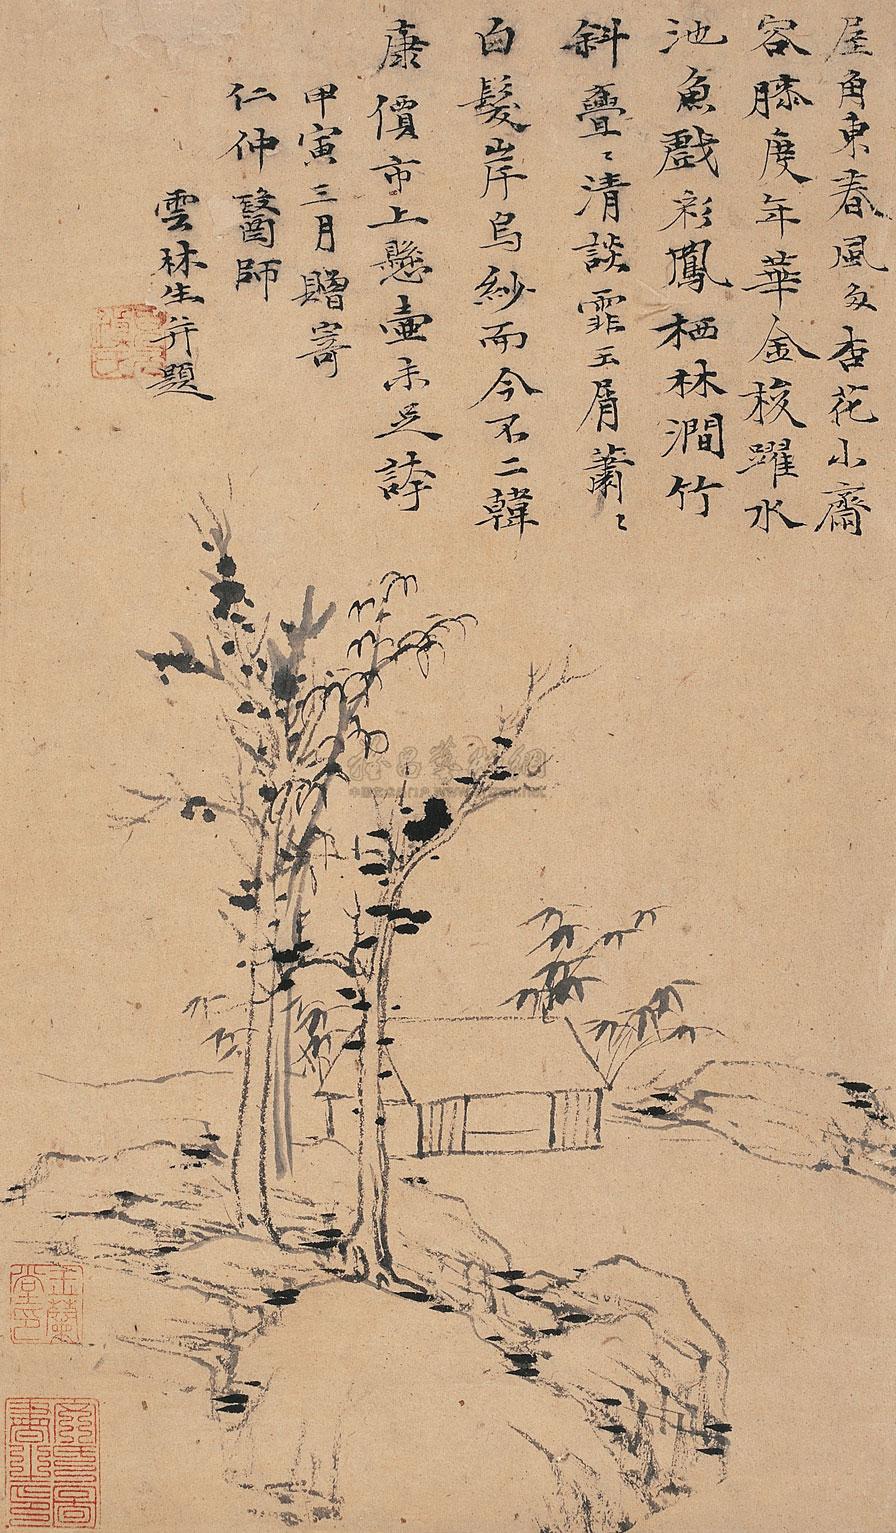 屋角東春風多杏花小齋
容膝度年華金梭躍水
池魚戲彩鳳栖林澗竹
斜亹〻清談霏玉屑蕭〻
白髮岸烏紗而今不二韓
康價市上懸壺未足誇
甲寅三月贈寄
仁仲醫師
雲林生并題